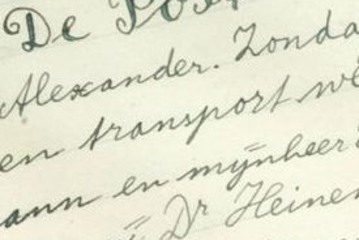 De
Alexander. Zonda
en transport we
ann en mijnheer
Dr Heinen